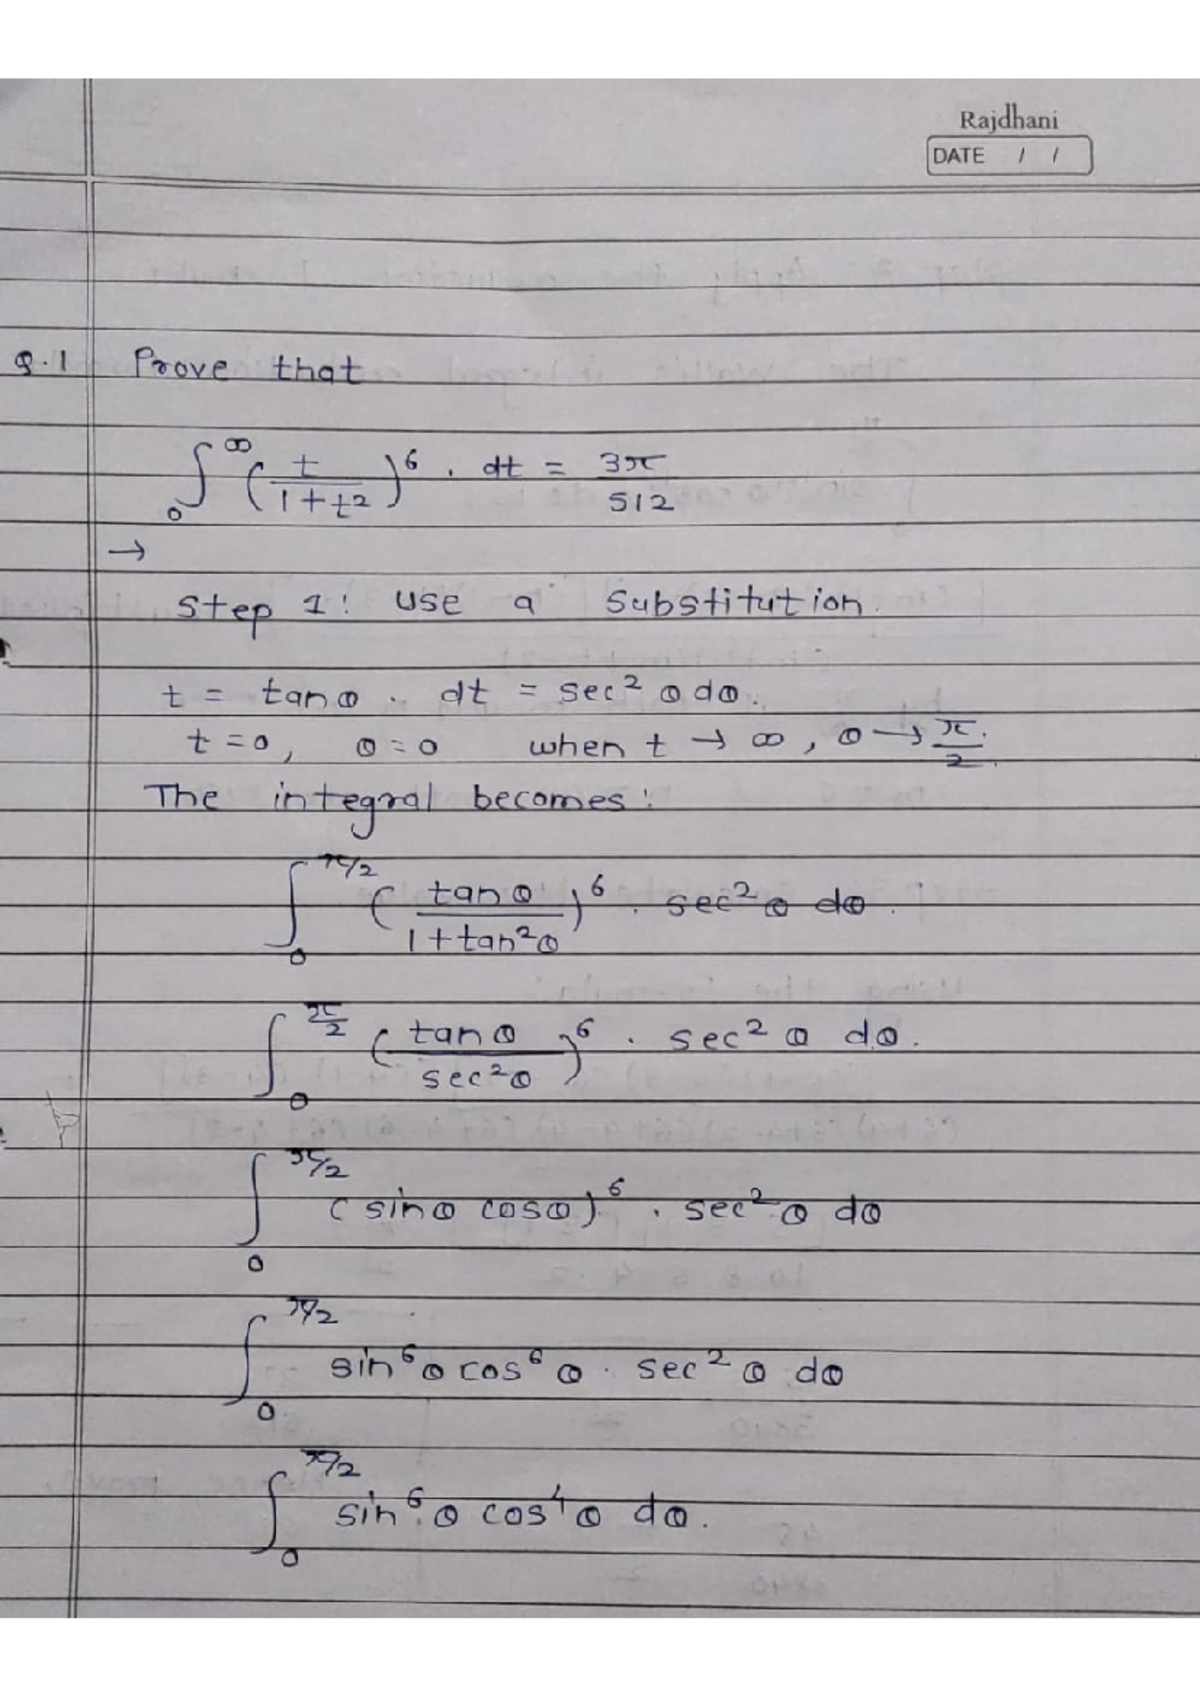 Rajdhani
DATE / /
Q.1 Prove that
∫₀^∞ (t/(1+t²))⁶ . dt = 3π/512
→
Step 1: Use a Substitution.
t = tanθ . dt = sec²θ dθ.
t = 0, θ = 0 when t → ∞, θ → π/2.
The integral becomes:
∫₀^π/2 (tanθ/(1+tan²θ))⁶ . sec²θ dθ.
∫₀^π/2 (tanθ/sec²θ)⁶ . sec²θ dθ.
∫₀^π/2 (sinθ cosθ)⁶ . sec²θ dθ
∫₀^π/2 sin⁶θ cos⁶θ . sec²θ dθ
∫₀^π/2 sin⁶θ cos⁴θ dθ.